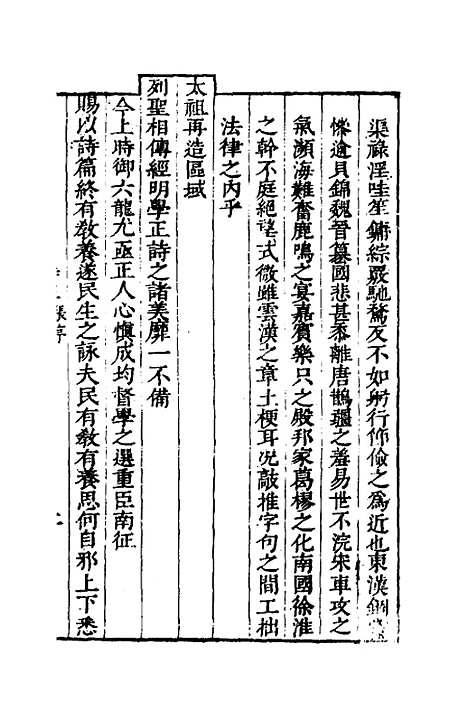 渠祿淫哇笙鏞綜嚴馳騖反不如躬行節儉之為近也東漢錮
慘逾貝錦魏晉篡國悲甚黍離唐鵲疆之羞易世不浣宋車攻之
氣瀕海難奮鹿鳴之宴嘉賓樂只之殿邦家葛樛之化南國徐淮
之幹不庭絕望式微雖雲漢之章土梗耳況敲推字句之間工拙
法律之內乎
太祖再造區域
列聖相傳經明學正詩之諸美靡一不備
今上時御六龍尤亟正人心慎成均督學之選重臣南征
賜以詩篇終有教養遂民生之詠夫民有教有養思何自邪上下悉
序
二